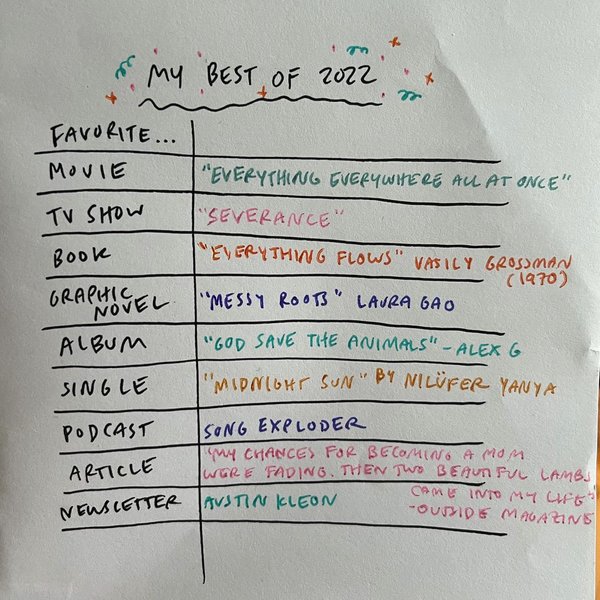 MY BEST OF 2022
FAVORITE...
MOVIE "EVERYTHING EVERYWHERE ALL AT ONCE"
TV SHOW "SEVERANCE"
BOOK "EVERYTHING FLOWS" VASILY GROSSMAN
(1970)
GRAPHIC
NOVEL "MESSY ROOTS" LAURA GAO
ALBUM "GOD SAVE THE ANIMALS" - ALEX G
SINGLE "MIDNIGHT SUN" BY NILÜFER YANYA
PODCAST SONG EXPLODER
ARTICLE "MY CHANCES FOR BECOMING A MOM
WERE FADING. THEN TWO BEAUTIFUL LAMBS
CAME INTO MY LIFE"
- OUTSIDE MAGAZINE
NEWSLETTER AUSTIN KLEON